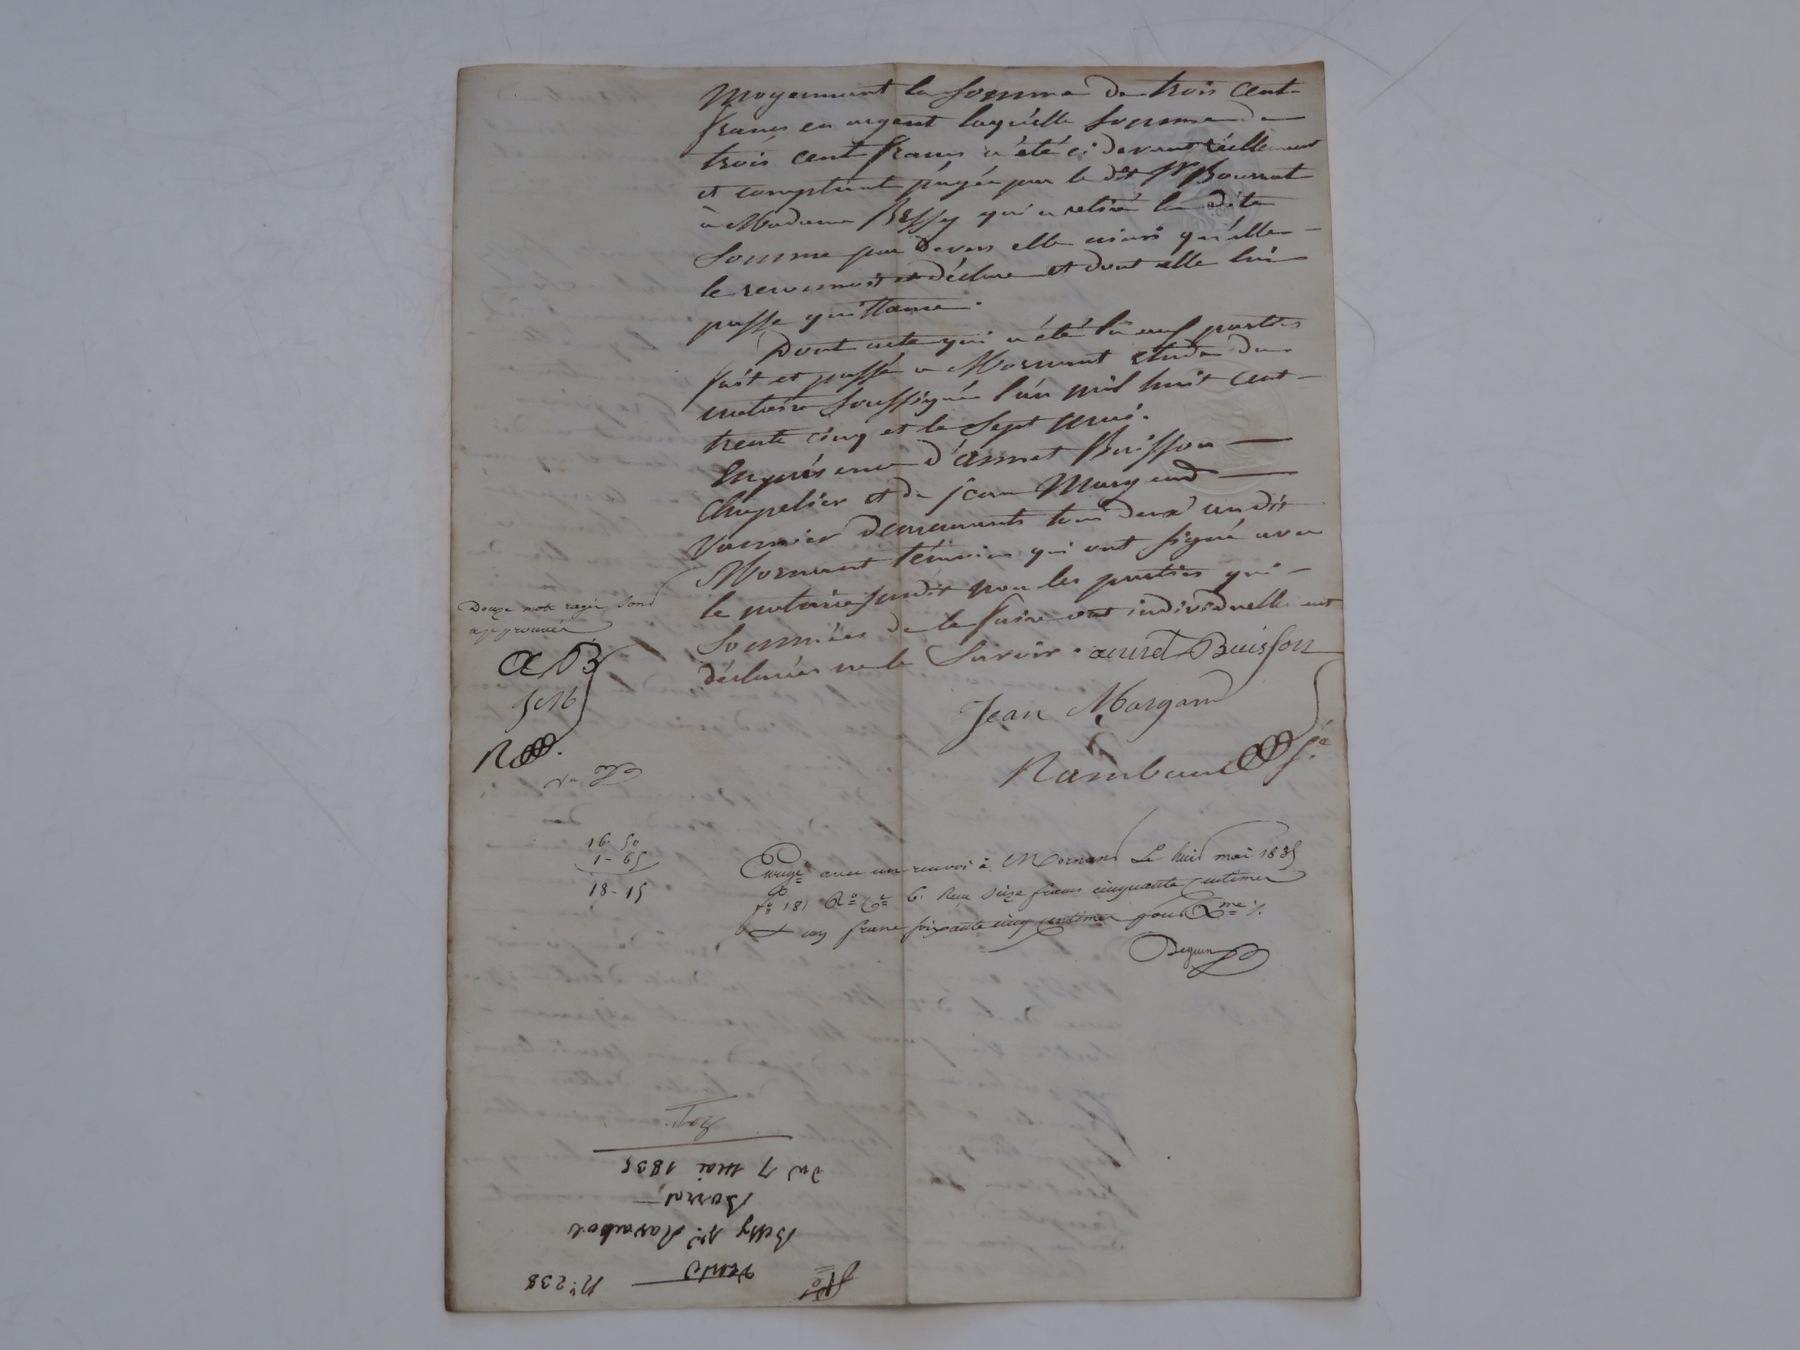 Moyennant la somme de trois cent
francs en argent laquelle somme de
trois cent francs a été ci devant réellement
et comptant payée par le dit Sr Bourrat
à Madame Bessy qui a retiré la dite
somme par devers elle ainsi qu'elle
le reconnoit et déclare et dont elle lui
passe quittance.
Dont acte qui a été lu aux parties
fait et passé a Mornant etude du
notaire soussigné l'an mil huit cent
trente cinq et le sept mai.
En présence d'annet Buisson
chapelier et de jean Margand
vannier demeurants tous deux au dit
Mornant témoins qui ont signé avec
le notaire susdit non les parties qui
sommées de le faire ont individuellement
déclarées ne le savoir. annet Buisson
Douze mots rayés sont
approuvés
A B
J M
R
Jean Margand
Rambaud
16 50
1 - 65
18 - 15
Enregé avec un renvoi à Mornant Le huit mai 1835
fo 181 Ro Ce 6. Reçu seize francs cinquante centimes
& un franc soixante cinq centimes pour Dme %.
Deguin
No 238
Vente
Bessy née Ravachol
Bourrat
du 7 mai 1835